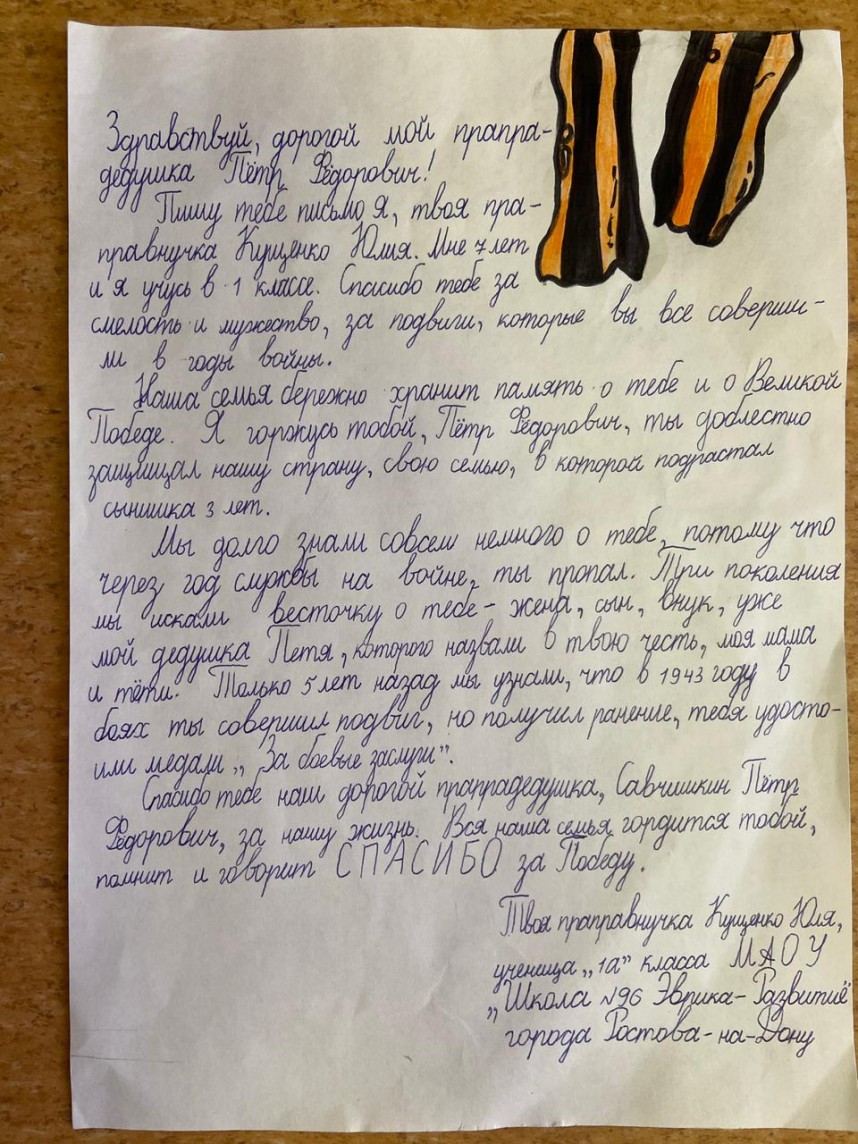 Здравствуй, дорогой мой прапра-
дедушка Пётр Фёдорович!
Пишу тебе письмо я, твоя пра-
правнучка Кущенко Юлия. Мне 7 лет
и я учусь в 1 классе. Спасибо тебе за
смелость и мужество, за подвиги, которые вы все соверши-
ли в годы войны.
Наша семья бережно хранит память о тебе и о Великой
Победе. Я горжусь тобой, Пётр Фёдорович, ты доблестно
защищал нашу страну, свою семью, в которой подрастал
сынишка 3 лет.
Мы долго знали совсем немного о тебе, потому что
через год службы на войне, ты пропал. Три поколения
мы искали весточку о тебе - жена, сын, внук, уже
мой дедушка Петя, которого назвали в твою честь, моя мама
и тёти. Только 5 лет назад мы узнали, что в 1943 году в
боях ты совершил подвиг, но получил ранение, тебя удосто-
или медали „За боевые заслуги".
Спасибо тебе наш дорогой прапрадедушка, Савчишкин Пётр
Фёдорович, за нашу жизнь. Вся наша семья гордится тобой,
помнит и говорит СПАСИБО за Победу.
Твоя праправнучка Кущенко Юля,
ученица „1а" класса МАОУ
„Школа №96 Эврика-Развитие"
города Ростова-на-Дону